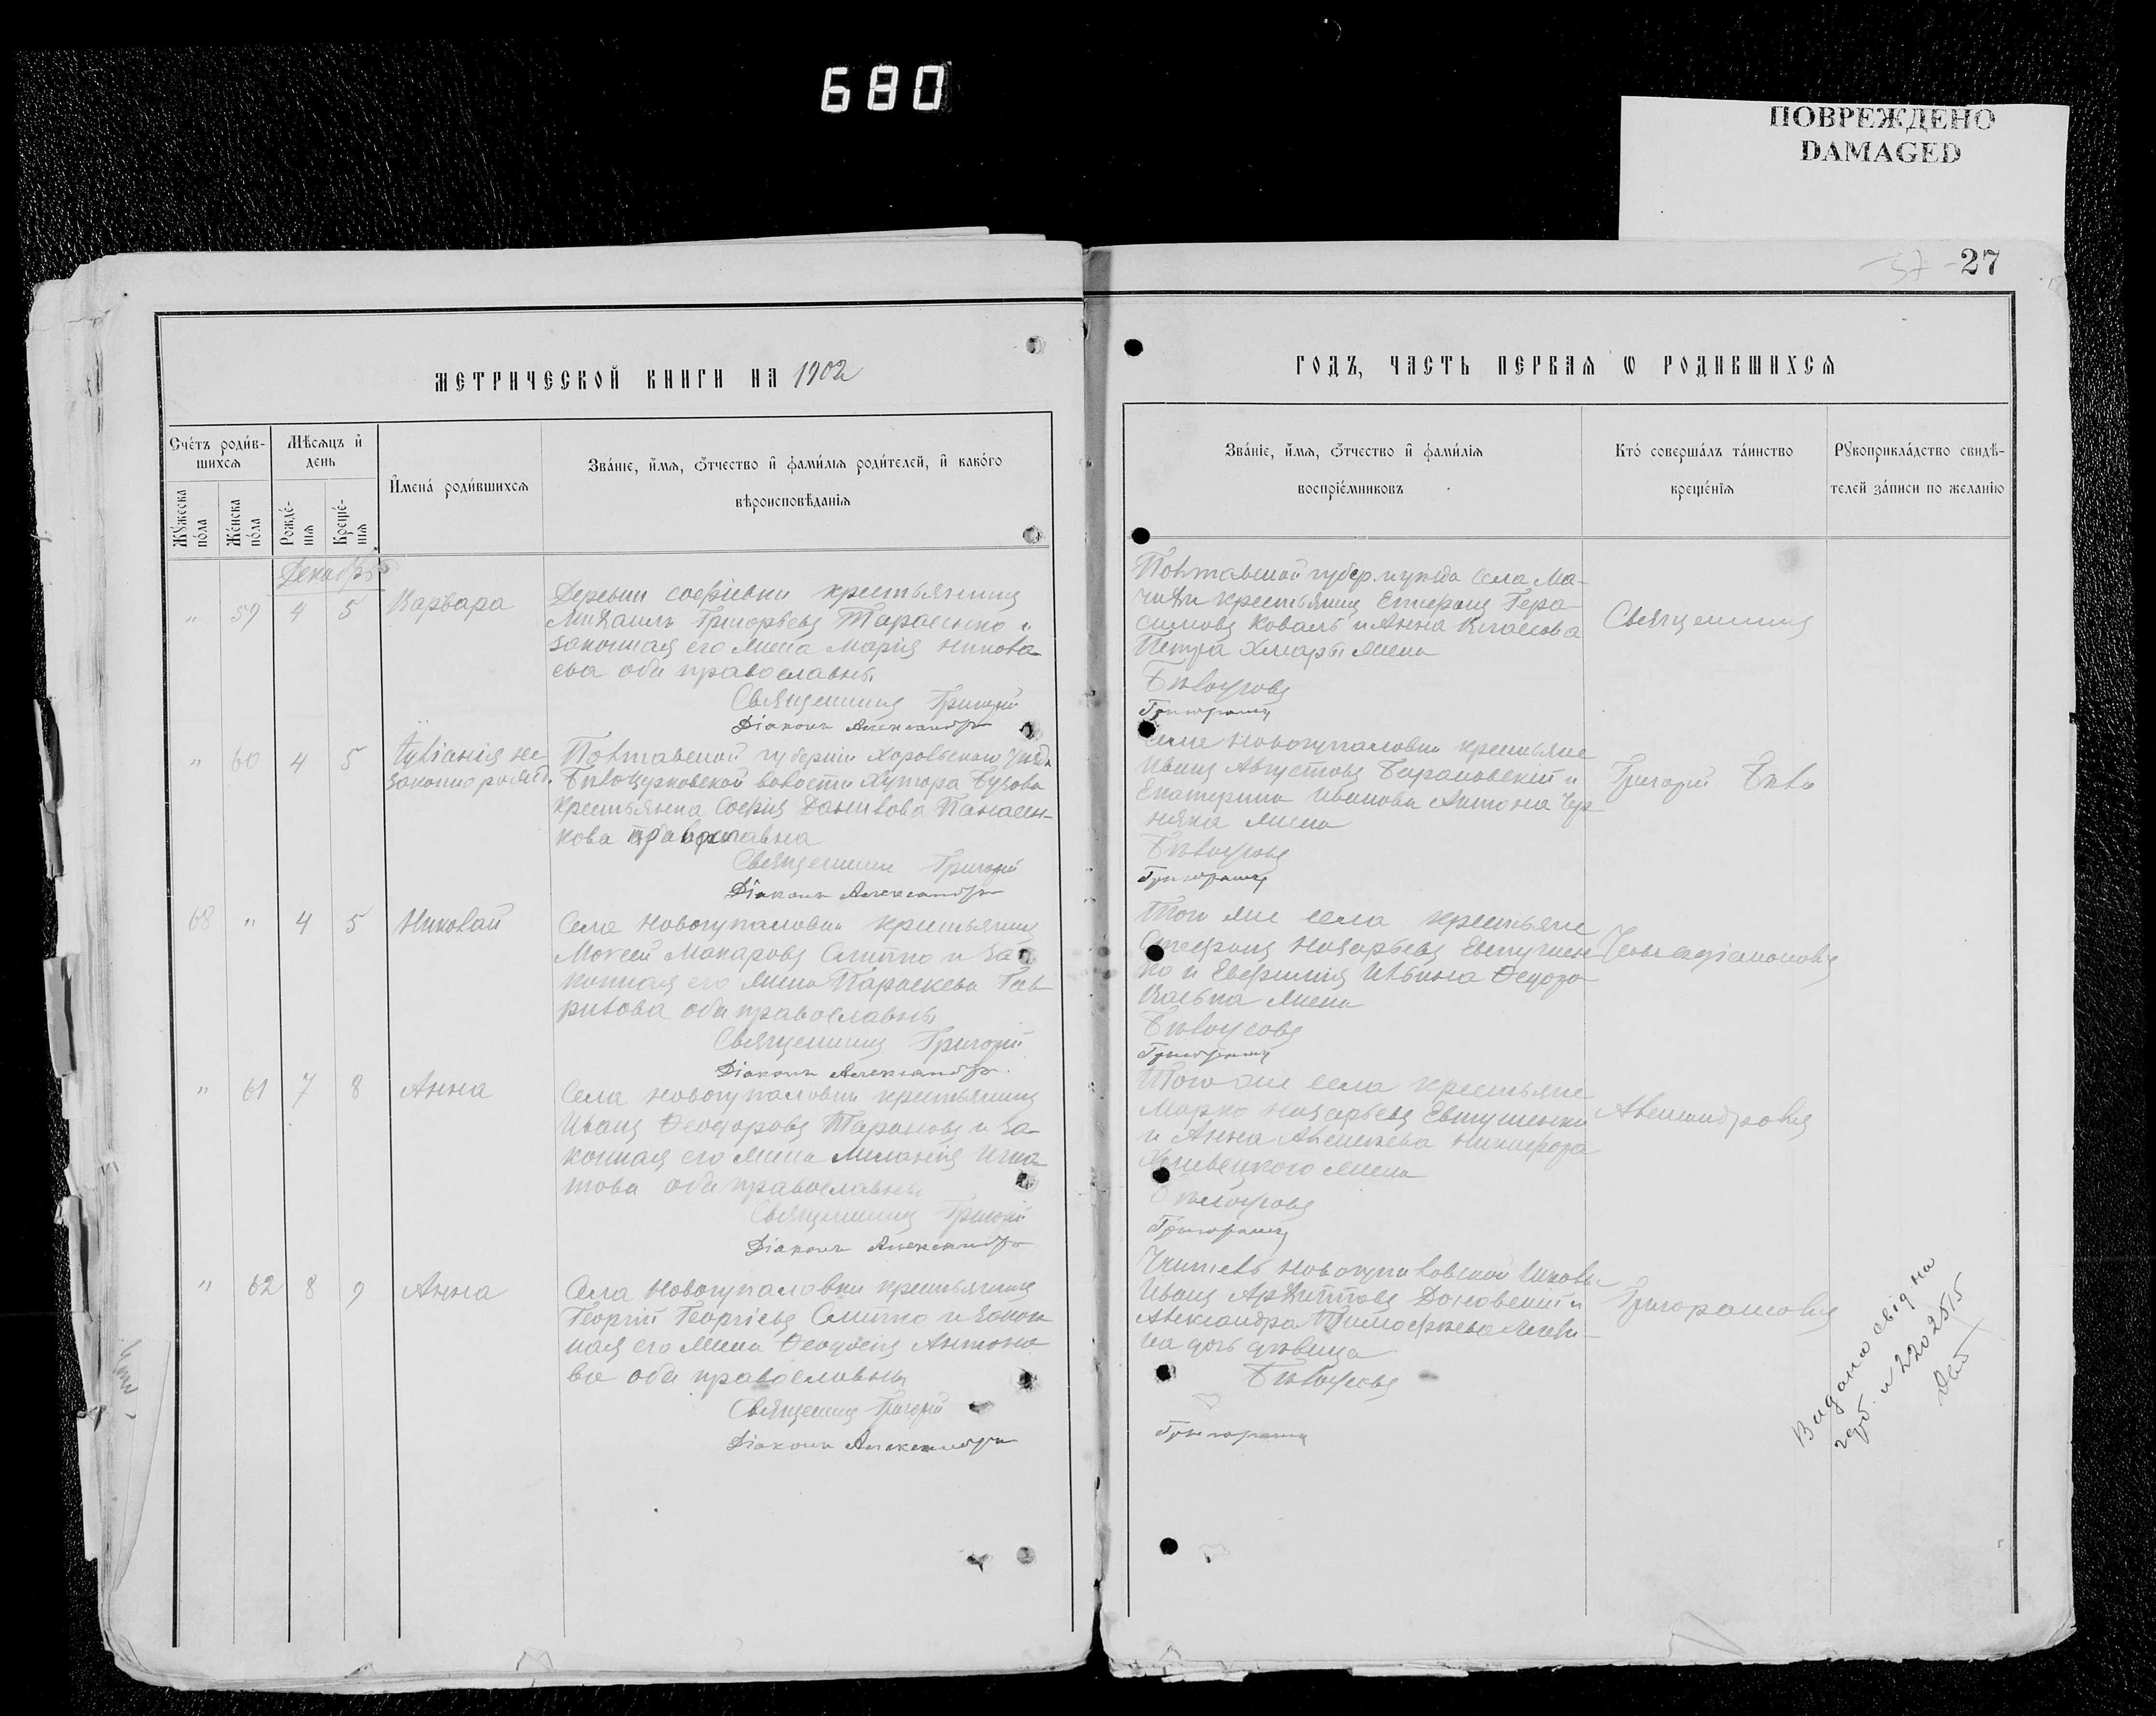 680
ПОВРЕЖДЕНО
DAMAGED
57 - 27
МЕТРИЧЕСКОЙ КНИГИ НА 1902
ГОДЪ, ЧАСТЬ ПЕРВАЯ Ѡ РОДИВШИХСЯ
Счетъ родив-
шихся
Мужеска
пола
Женска
пола
Мѣсяцъ и
день
Рожде-
нія
Креще-
нія
Имена родившихся
Званіе, имя, отчество и фамилія родителей, и какого
вѣроисповѣданія
Званіе, имя, отчество и фамилія
воспріемниковъ
Кто совершалъ таинство
крещенія
Рукоприкладство свидѣ-
телей записи по желанію
Декабрь
" 59 4 5 Варвара
Деревни Софіевки крестьянинъ
Михаилъ Григорьевъ Тарасенко и
законная его жена Марія Никола
ева оба православны
Священникъ Григорій
Діаконъ Александръ
Полтавской губер. и уѣзда села Ма-
чехи крестьянинъ Стефанъ Гера-
симовъ Коваль и Анна Власова
Петра Хмары жена
Бѣлоусовъ
Григорашъ
Священникъ
" 60 4 5 Іуліанія не
законнорожд.
Полтавской губерніи Хорольскаго уѣзда
Бѣлоцерковской волости Хутора Бузова
крестьянка Софія Данилова Панасен-
кова православна
Священникъ Григорій
Діаконъ Александръ
Села Новогупаловки крестьяне
Иванъ Августовъ Барановскій и
Екатерина Иванова Антона Чер
няка жена
Бѣлоусовъ
Григорашъ
Григорій Бѣло
68 " 4 5 Николай
Села Новогупаловки крестьянинъ
Моѵсей Макаровъ Слипко и за
конная его жена Параскева Гав
рилова оба православны
Священникъ Григорій
Діаконъ Александръ
Того же села крестьяне
Стефанъ Назарьевъ Евтушен
ко и Евфимія Ильина Ѳеодора
жена
Бѣлоусовъ
Григорашъ
" 61 7 8 Анна
Села Новогупаловки крестьянинъ
Иванъ Ѳеодоровъ Тарановъ и за-
конная его жена Меланія Игна
това оба православны
Священникъ Григорій
Діаконъ Александръ
Того же села крестьяне
Марко Назарьевъ Евтушенко
и Анна Алексѣева Никифора
жена
Бѣлоусовъ
Григорашъ
Александровъ
" 62 8 9 Анна
Села Новогупаловки крестьянинъ
Георгій Георгіевъ Слипко и закон
ная его жена Ѳеодосія Антоно
ва оба православны
Священникъ Григорій
Діаконъ Александръ
Учитель Новогупаловской школы
Иванъ Архиповъ и
Александра Тимофѣева
дочь дѣвица
Бѣлоусовъ
Григорашъ
Видано свід на
2202515